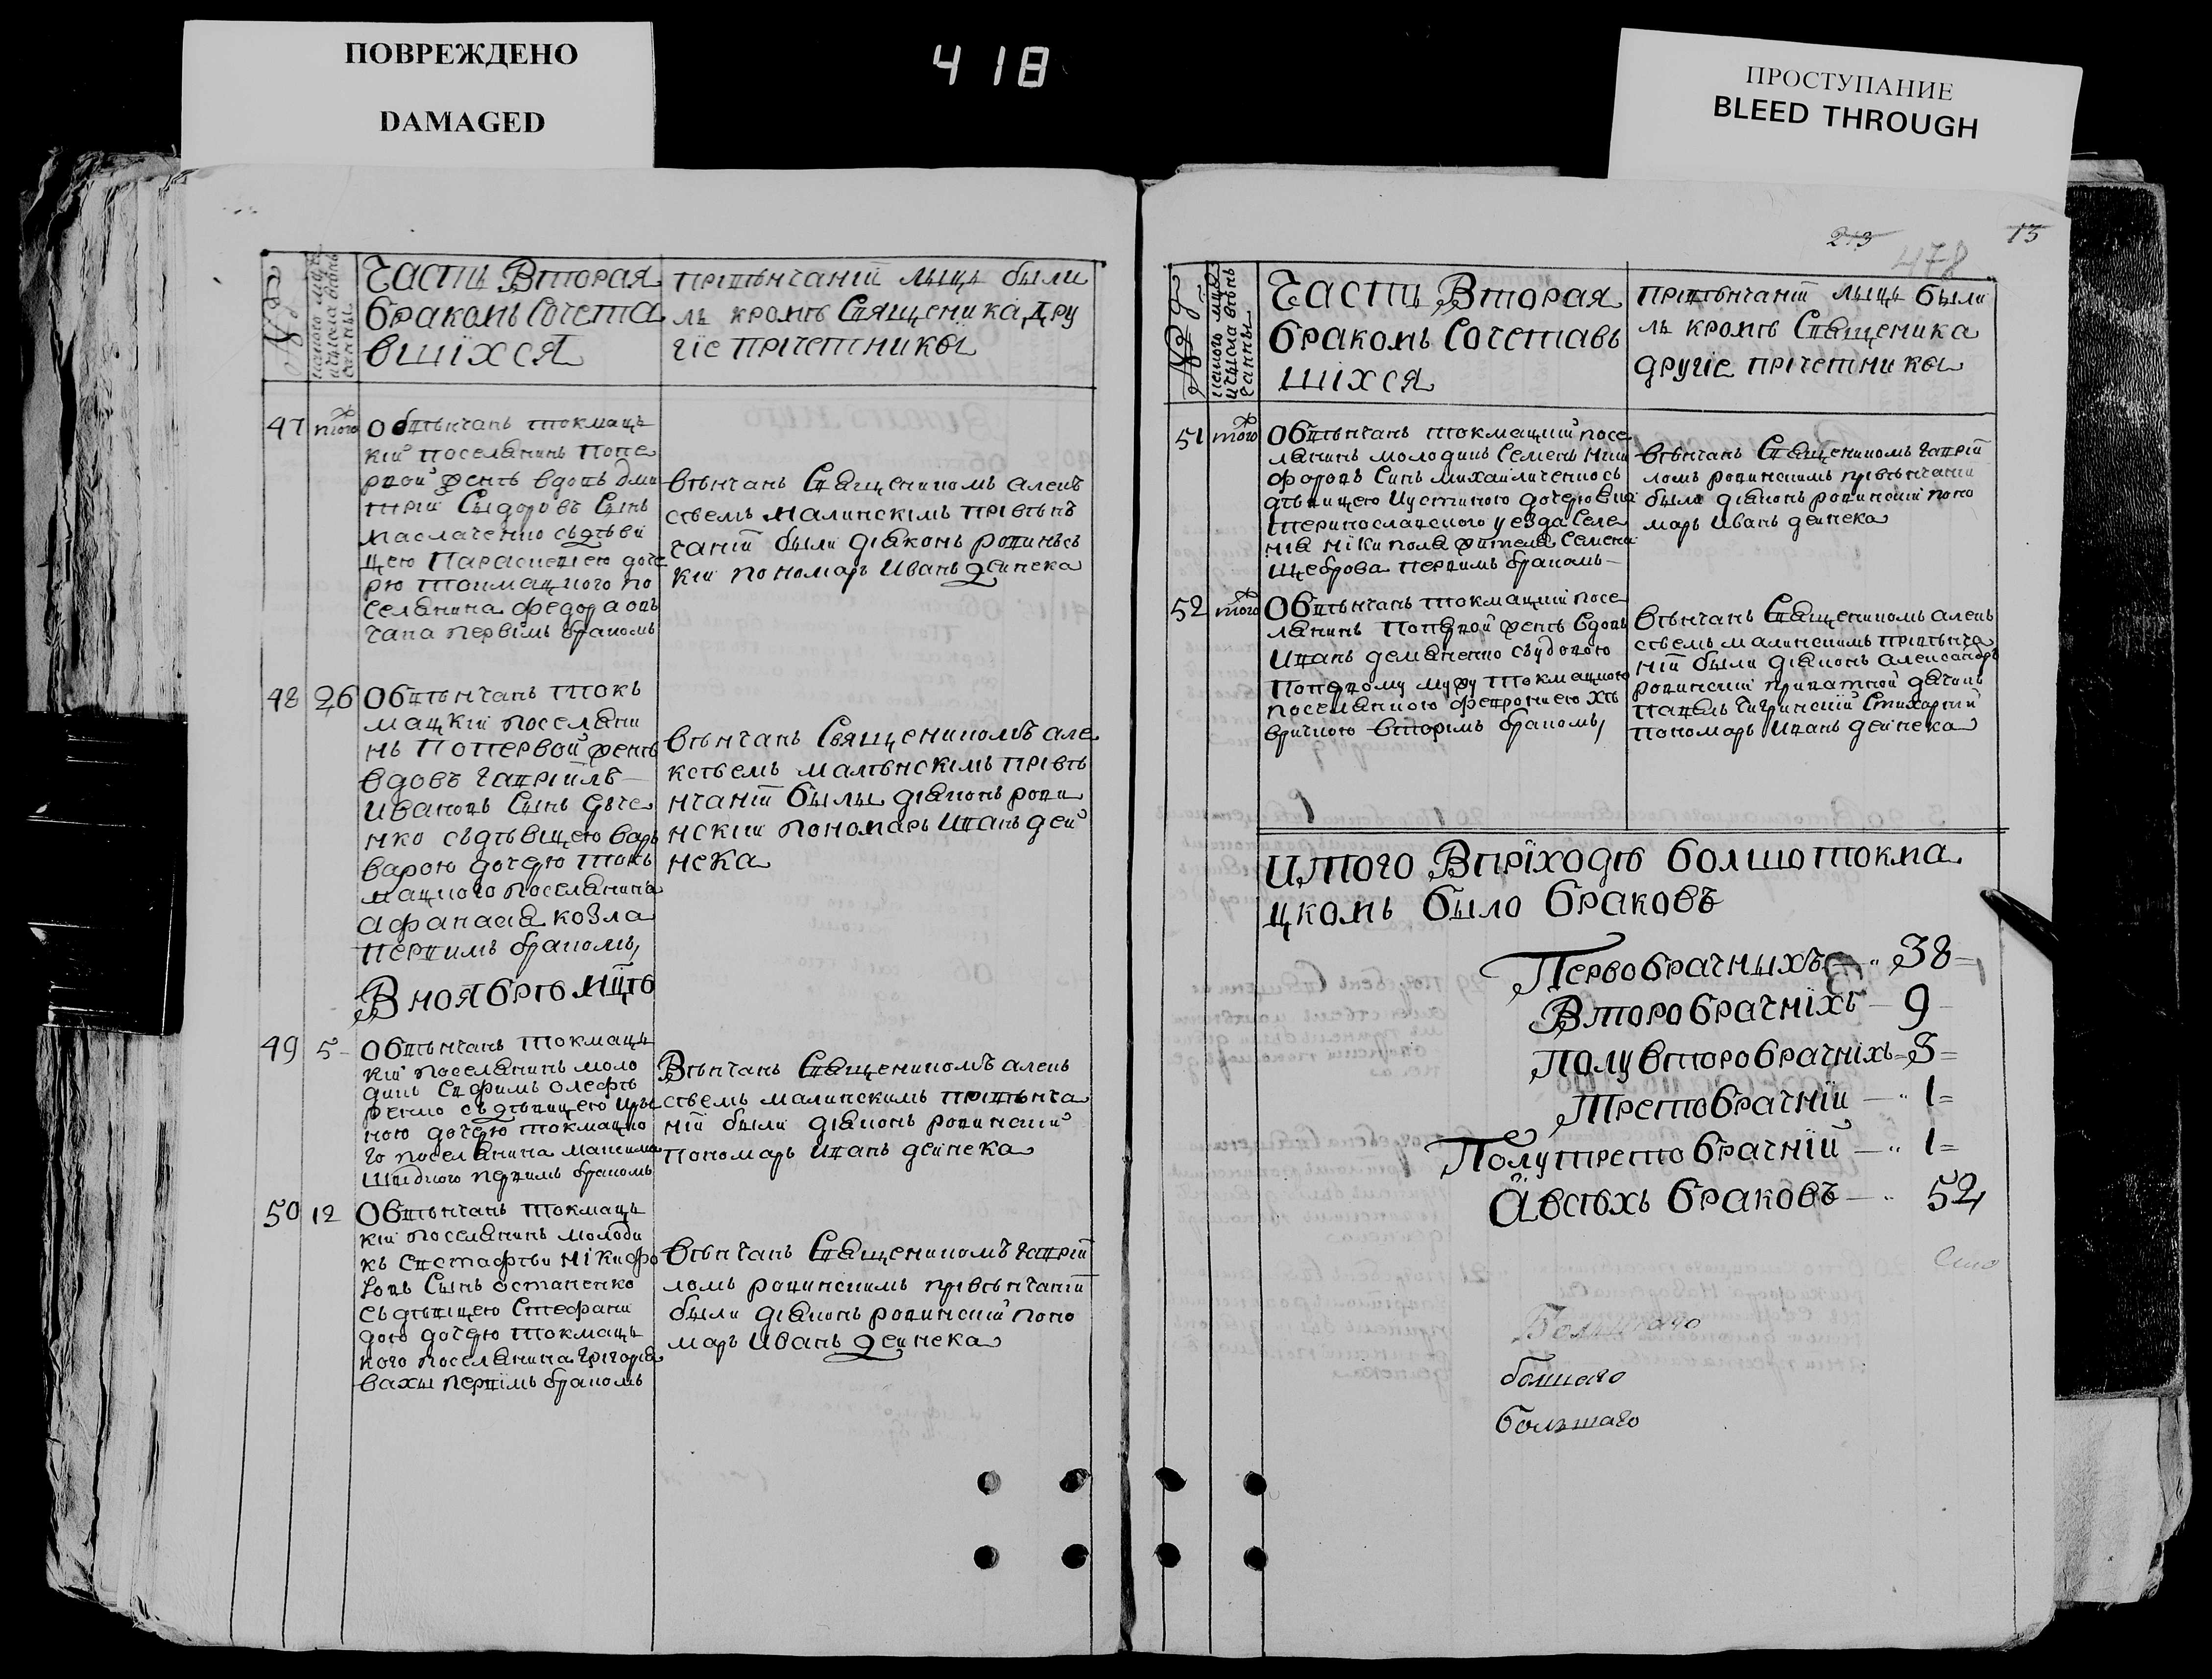 ПОВРЕЖДЕНО
DAMAGED
418
ПРОСТУПАНИЕ
BLEED THROUGH
213
478
13
Часть Вторая
бракомъ Сочета
вшїхся
прївѣнчанїї лыцъ были
лъ кромѣ Священика, дру
гїе прїчетникы
47 того
Обвѣнчанъ токмацъ
кїй поселянинъ попе
рвой женѣ вдовъ дми
трїй Сыдоровъ Сынъ
маслаченко съдѣви
цею Параскевїею доче
рю токмацкого по
селянина федора овъ
чара первїмъ бракомъ
вѣнчанъ Священикомъ алекѣ
сѣемъ малинскїмъ прївѣнъ
чанїї были дїяконъ ровинъсъ
кїй пономарь Иванъ дейнека
48 26
Обвѣнчанъ токъ
мацкїй поселяни
нъ поперьвой женѣ
вдовъ гаврїилъ
Ивановъ Сынъ
нко съдѣвицею варъ
варою дочерю токъ
мацкого поселянина
афанасїя козла
первимъ бракомъ
вѣнчанъ Священикомъ але
ксѣемъ малѣнскїмъ прївѣ
нчанїї былы дїяконъ рови
нскїй пономарь Иванъ дей
нека
В ноябрѣ мцѣ
49 5
Обвѣнчанъ токмацъ
кїй поселянинъ моло
дикъ Евфимъ олефѣ
ренко съдѣвицею
ною дочерю токмацко
го поселянина максима
первимъ бракомъ
Вѣнчанъ Священикомъ алекъ
сѣемъ малинскимъ прївѣнча
нїї были дїяконъ ровинскїй
пономарь Иванъ дейнека
50 12
Обвѣнчанъ токмацъ
кїй поселянинъ молоди
къ Евстафѣй нїкифо
ровъ Сынъ остапенко
съдѣвицею Стефани
дою дочерю токмацъ
кого поселянина Грїгорїя
вахы первїмъ бракомъ
вѣнчанъ Священикомъ гаврїй
ломъ ровинскимъ прївѣнчанїї
были дїяконъ ровинскїй поно
марь Иванъ дейнека
Часть Вторая
бракомъ Сочетавъ
шїхся
прївѣнчанїї лыцъ были
лъ кромѣ Священика
другїе прїчетникы
51 того
Обвѣнчанъ токмацкїй посе
лянинъ молодикъ Семенъ ники
форовъ Синъ михайличенко съ
дѣвицею Иустиною дочерю Ека
теринославского уезда Селе
нїя нїкиполя жителя Семена
щеброва первимъ бракомъ
вѣнчанъ Священикомъ гаврїй
ломъ ровинскимъ прївѣнчанїї
были дїяконъ ровинскїй поно
марь Иванъ дейнека
52 того
Обвѣнчанъ токмацкїй посе
лянинъ поперьвой женѣ вдовъ
Иванъ демяненко съудовою
поперьвому мужу токмацкого
поселянкою февронїею хѣ
вричкою вторїмъ бракомъ
вѣнчанъ Священикомъ алекъ
сѣемъ малинскимъ прївѣнча
нїї были дїяконъ александръ
ровинскїй приватной дячокъ
павелъ чигринскїй Стихарнїй
пономарь Иванъ дейнека
Итого Впрїходѣ болшотокма
цкомъ было браковъ
Первобрачныхъ — 38
Второбрачнїхъ — 9
Полувторобрачнїхъ = 3
Третобрачнїй — 1
Полутретобрачнїй — 1
А всѣхъ браковъ — 52
Большаго
болшаго
большаго